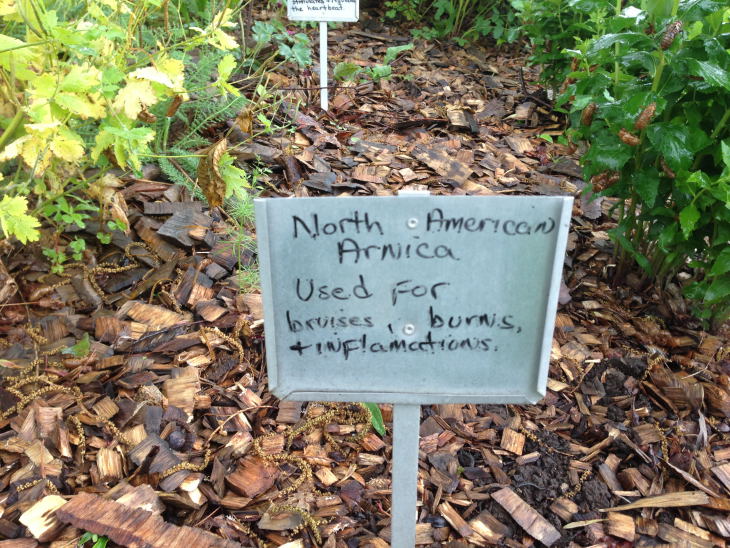 the heartbeat
North American
Arnica
Used For
bruises, burns,
+ inflamations.